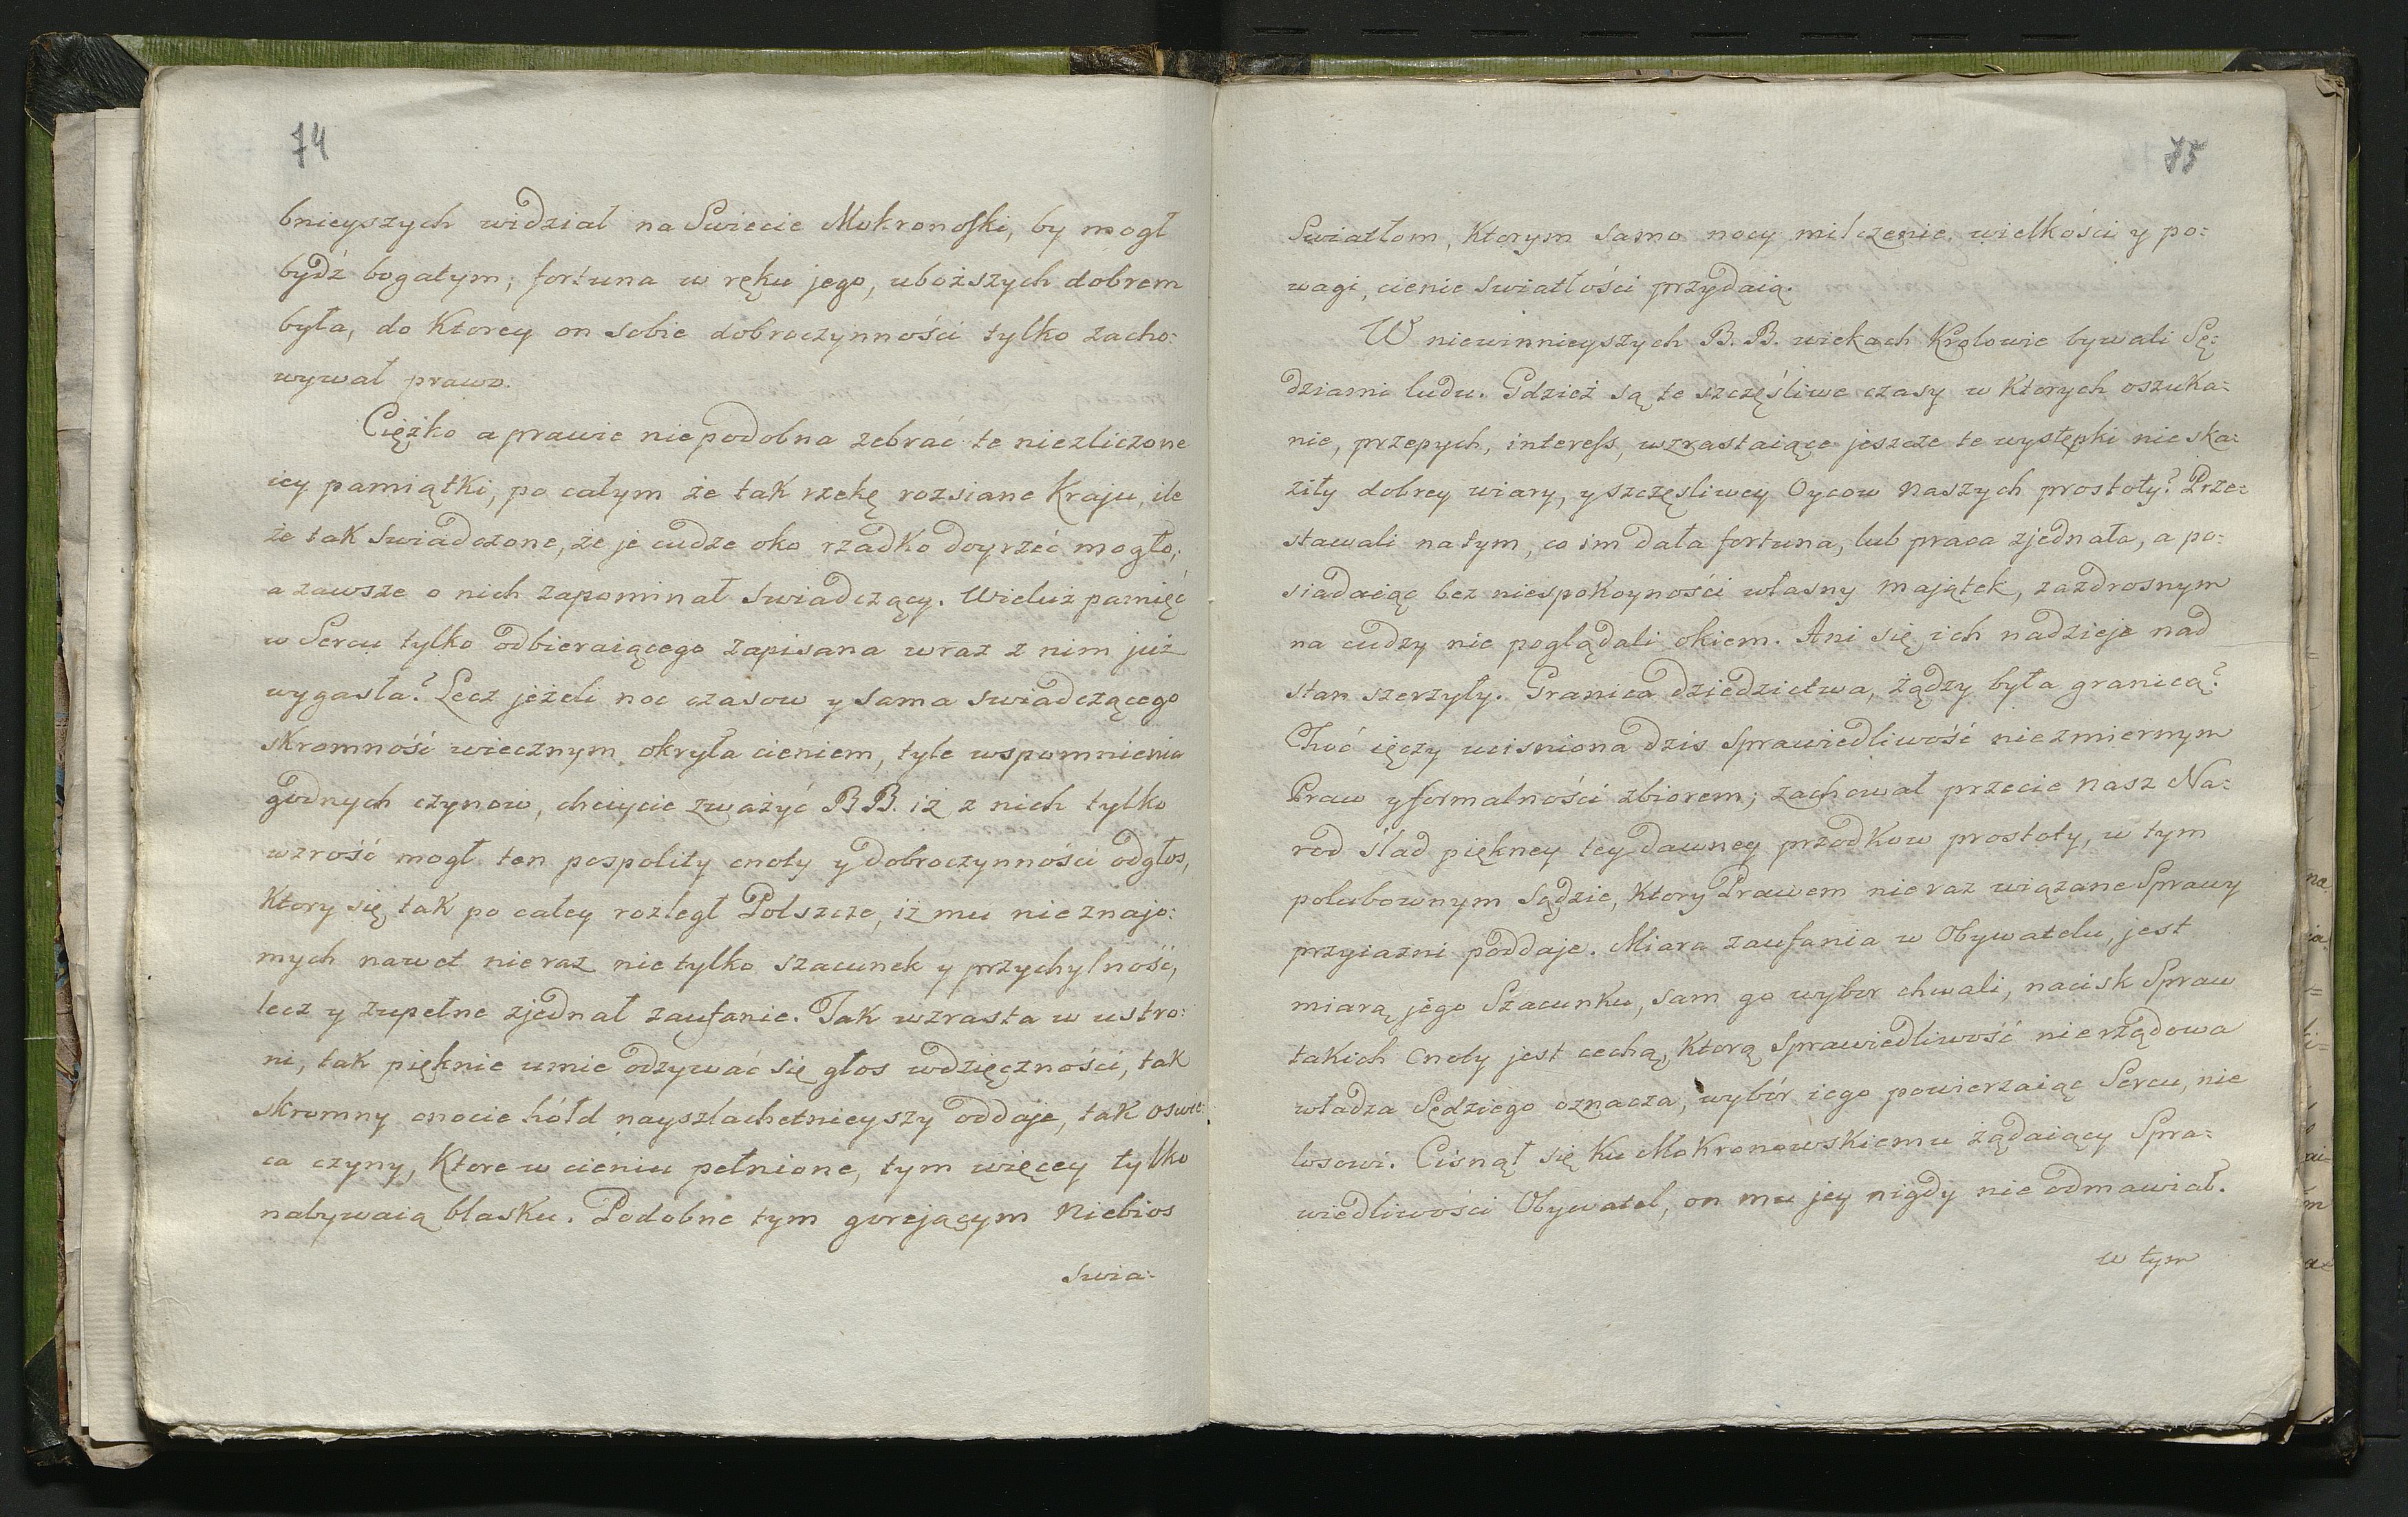 74
bnieyszych widział na Swiecie Mokronoſki, by mogł
bydź bogatym; fortuna w ręku jego, uboższych dobrem
była, do Ktorey on sobie dobroczynności tylko zacho:
wywał prawo.
Ciężko a prawie niepodobna zebrać te niezliczone
iey pamiątki, po całym że tak rzekę rozsiane Kraju, ile
że tak swiadczone, że je cudze oko rzadko doyrzeć mogło,
a zawsze o nich zapominał swiadczący. Wieluż pamięć
w Sercu tylko odbieraiącego zapisana wraz z nim już
wygasła? Lecz jeżeli noc czasow y sama swiadczącego
skromność wiecznym okryła cieniem, tyle wspomnienia
godnych czynow, chciycie zważyć B B. iż z nich tylko
wzrość mogł ten pospolity cnoty y dobroczynności odgłos,
Ktory się tak po całey rozległ Polszcze, iż mu nieznajo:
mych nawet nieraz nietylko szacunek y przychylność,
lecz y zupełne zjednał zaufanie. Tak wzrasta w ustro:
ni, tak pięknie umie odzywać się głos wdzięczności, tak
skromny cnocie hołd nayszlachetnieyszy oddaje, tak oswie:
ca czyny, Ktore w cieniu pełnione, tym więcey tylko
nabywaią blasku. Podobne tym gorejącym Niebios
swia:
75
Swiatłom, Ktorym samo nocy milczenie wielkości y po:
wagi, cienie swiatłości przydaią.
W niewinnieyszych B. B. wiekach Krolowie bywali Sę:
dziami ludu. Gdzież są te szczęśliwe czasy w Ktorych oszuka:
nie, przepych, intereſs, wzrastaiące jeszcze te występki nie ska:
ziły dobrey wiary, y szczęsliwey Oycow naszych prostoty? Prze:
stawali na tym, co im dała fortuna, lub praca zjednała, a po:
siadaiąc bez niespokoyności własny majątek, zazdrosnym
na cudzy nie poglądali okiem. Ani się ich nadzieje nad
stan szerzyły. Granica dziedzictwa, żądzy była granicą?
Choć ięczy ucisniona dzis Sprawiedliwość niezmiernym
Praw y formalności zbiorem; zachował przecie nasz Na:
rod ślad piękney tey dawney przodkow prostoty, w tym
polubownym Sądzie, Ktory Prawem nieraz wiązane Sprawy
przyiazni poddaje. Miara zaufania w Obywatelu, jest
miarą jego Szacunku, sam go wybor chwali, nacisk Spraw
takich cnoty jest cechą, Ktorą Sprawiedliwość nierządowa
władza Sędziego oznacza, wybór iego powierzaiąc Sercu, nie
losowi. Cisnął się Ku Mokronowskiemu żądaiący Spra:
wiedliwości Obywatel, on mu jey nigdy nie odmawiał.
w tym